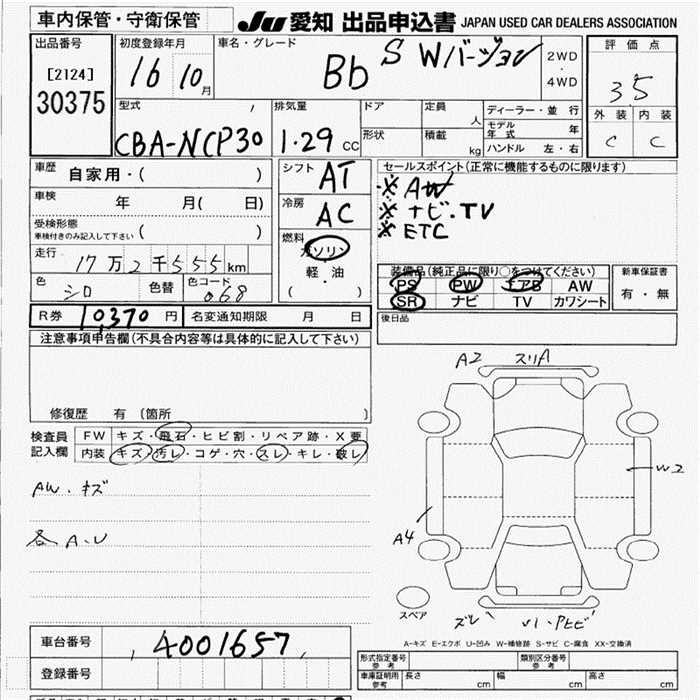 車内保管・守衛保管
JU 愛知 出品申込書 JAPAN USED CAR DEALERS ASSOCIATION
出品番号
[2124]
30375
初度登録年月
16 10月
車名・グレード
Bb S Wバージョン
2WD
・
4WD
評価点
3.5
外装 内装
C C
型式
CBA-NCP30
排気量
1.29 CC
ドア
定員
人
形状
積載
kg
ディーラー・並行
モデル年式 年
ハンドル 左・右
車歴
自家用・( )
車検
年 月( 日)
受検形態
車検付きのみ記入して下さい ( )
走行
17万2千555km
色
シロ
色替
色コード
068
シフト
AT
冷房
AC
燃料
ガソリン
軽・油
( )
セールスポイント(正常に機能するものに限ります)
※ AW
※ ナビ.TV
※ ETC
装備品(純正品に限り○をつけてください)
PS PW エアB AW
SR ナビ TV カワシート
新車保証書
有・無
R券 10,370円
名変通知期限 月 日
後日品
注意事項申告欄(不具合内容等は具体的に記入して下さい)
修復歴 有 (箇所 )
検査員記入欄
FW キズ・飛石・ヒビ割・リペア跡・X要
内装 キズ・汚レ・コゲ・穴・スレ・キレ・破レ
AW.キズ
各A.U
A2 スリA
W2
A4
スペア
ズレ
V1.Pヒビ
A-キズ E-エクボ U-凹み W-補修跡 S-サビ C-腐食 XX-交換済
車台番号
4001657
登録番号
形式指定番号
参考
類別区分番号
参考
車庫証明用
参考
長さ cm
幅 cm
高さ cm